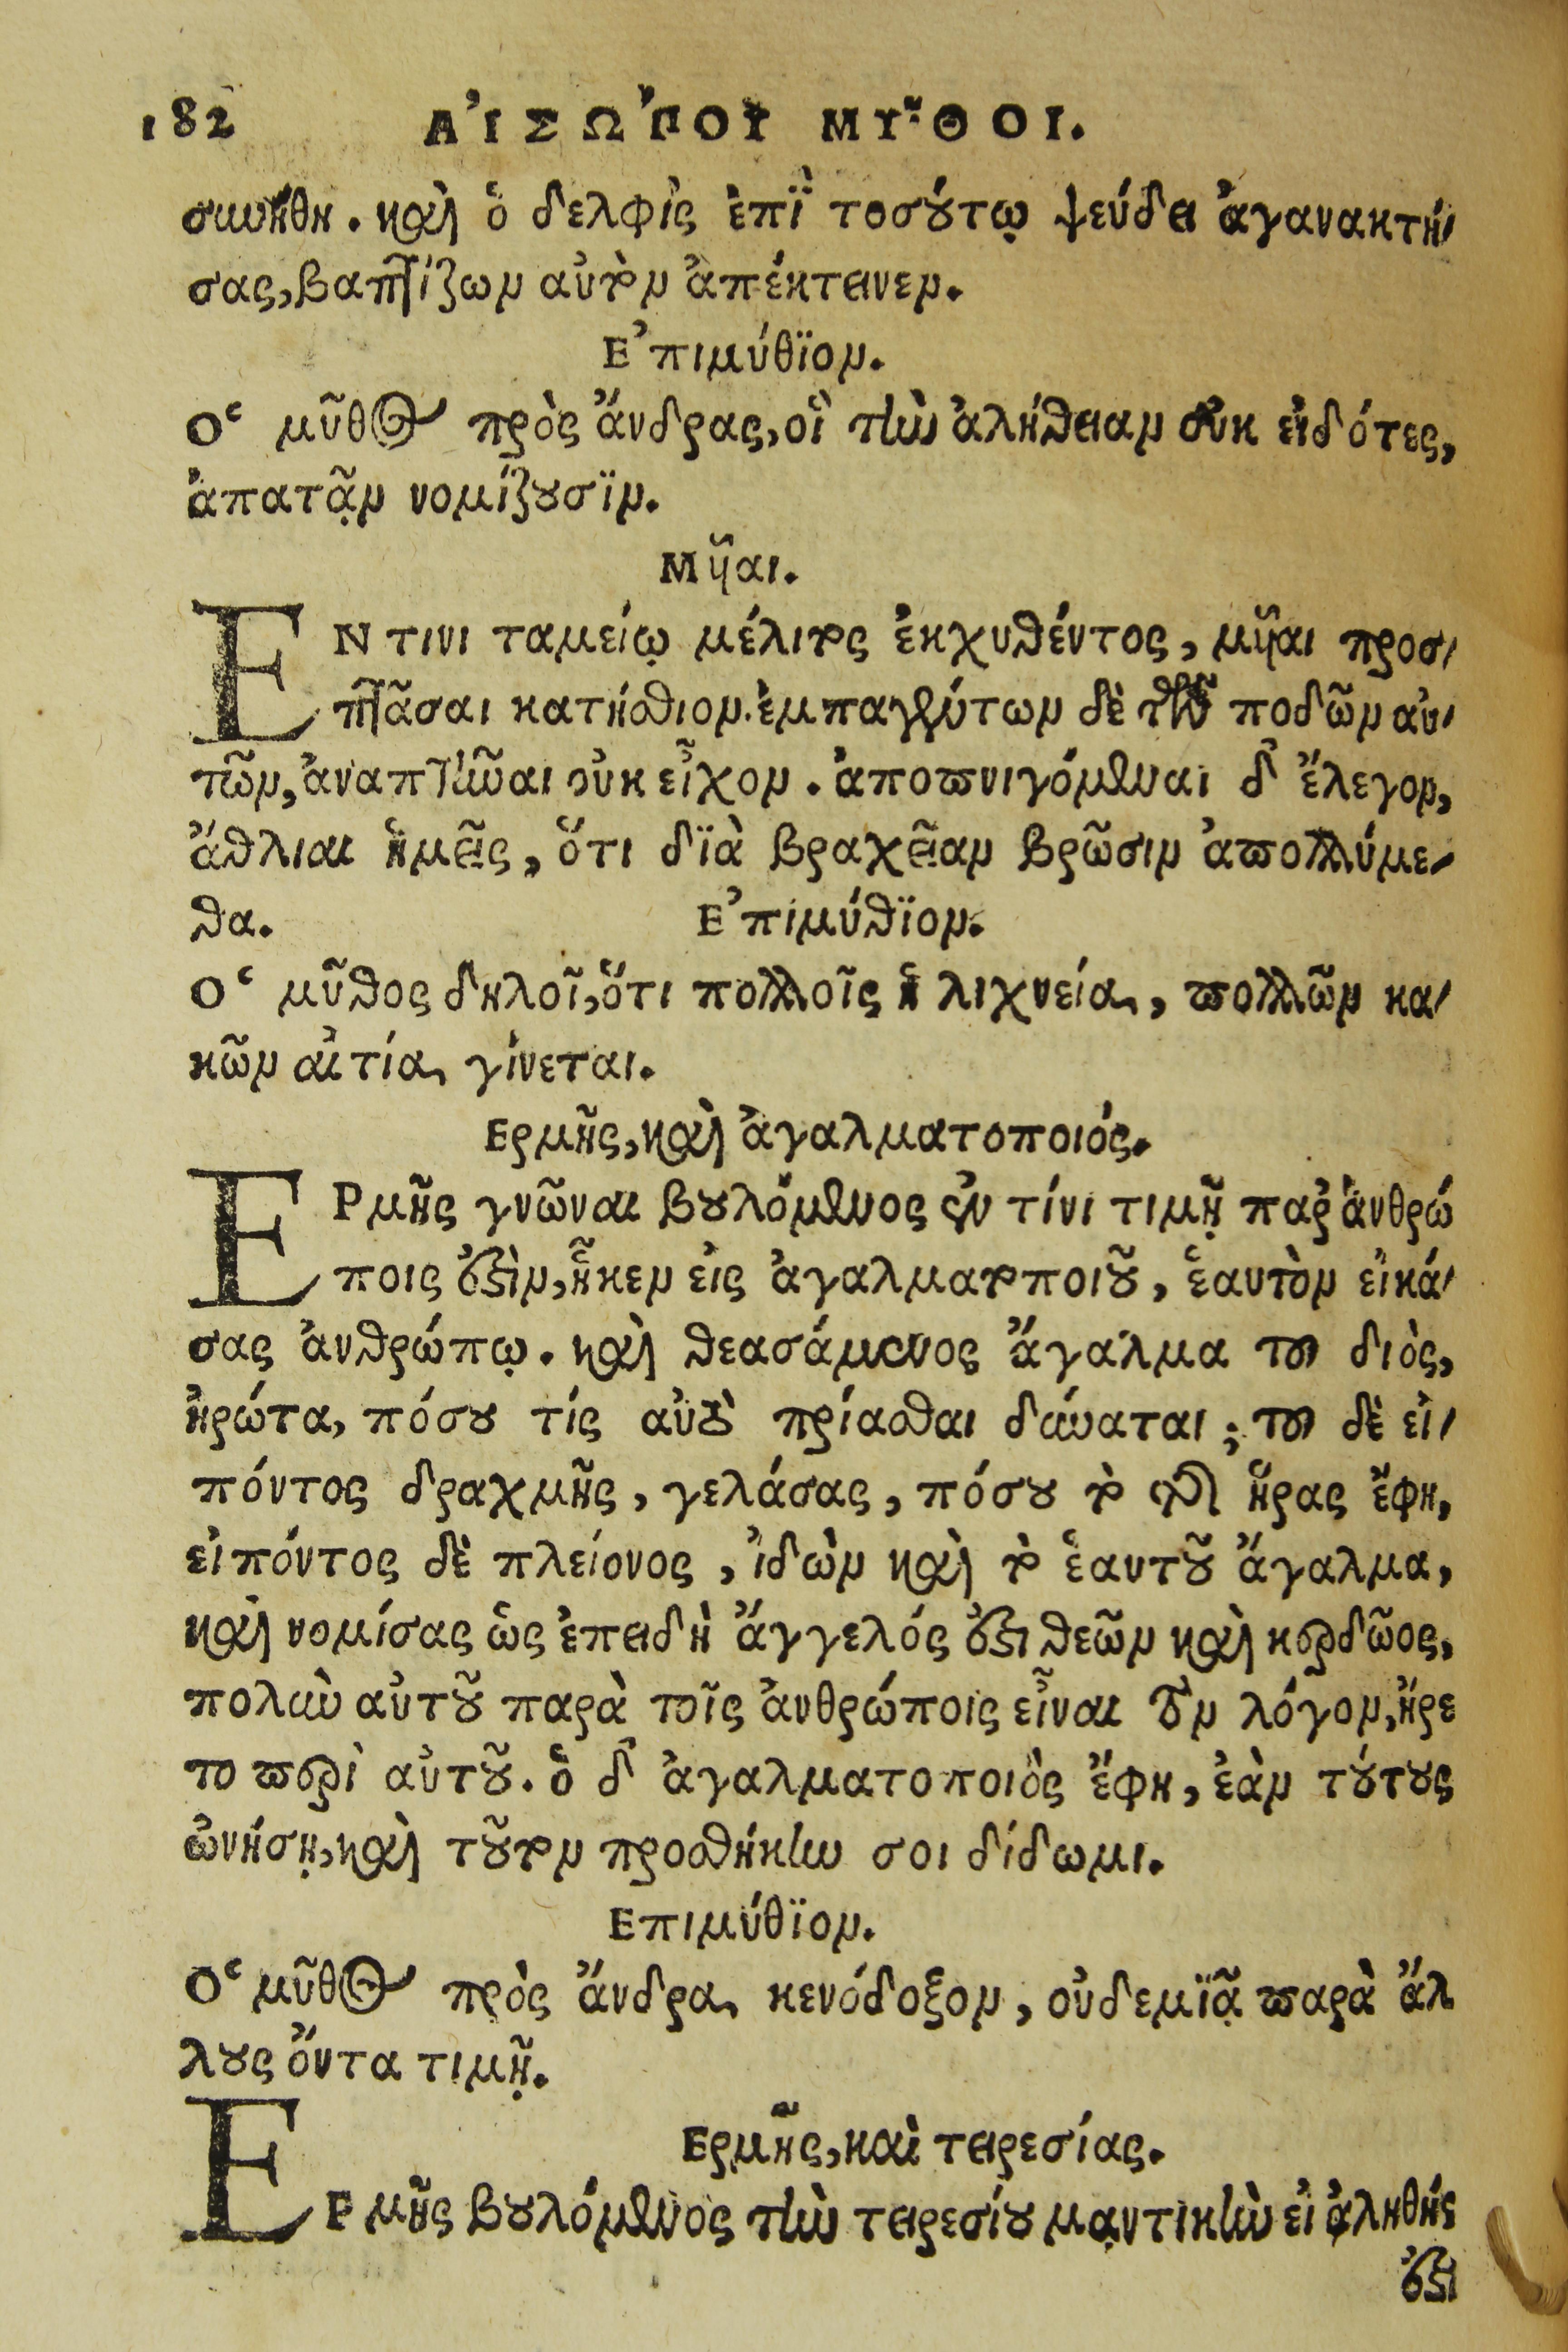 182 ΑἸΣΩ´ΠΟΥ ΜΥ͂ΘΟΙ.
συνήθη. καὶ ὁ δελφὶς ἐπὶ̈ τοσούτῳ ψεύδει ἀγανακτή/
σας, βαπτίζων αὐτὸν ἀπέκτεινεν.
Ἐπιμύθϊον.
Ὁ μῦθος πρὸς ἄνδρας, οἳ τὴν ἀλήθειαν οὐκ εἰδότες,
ἀπατᾷν νομίζουσϊν.
Μυῖαι.
ΕΝ τινι ταμείῳ μέλιτος ἐκχυθέντος, μυῖαι προσ/
πτᾶσαι κατήσθιον. ἐμπαγέντων δὲ τῶν ποδῶν αὐ/
τῶν, ἀναπτῆναι οὐκ εἶχον. ἀποπνιγόμεναι δ' ἔλεγον,
ἄθλιαι ἡμεῖς, ὅτι δϊὰ βραχεῖαν βρῶσιν ἀπολλύμε/
θα. Ἐπιμύθϊον.
Ὁ μῦθος δηλοῖ, ὅτι πολλοῖς ἡ λιχνεία, πολλῶν κα/
κῶν αἰτία γίνεται.
Ερμῆς, καὶ ἀγαλματοποιός.
ΕΡμῆς γνῶναι βουλόμενος ἐν τίνι τιμῇ παρ' ἀνθρώ
ποις ἐστὶν, ἧκεν εἰς ἀγαλματοποιοῦ, ἑαυτὸν εἰκά/
σας ἀνθρώπῳ. καὶ θεασάμενος ἄγαλμα τοῦ διὸς,
ἠρώτα, πόσου τίς αὐτὸ πρίασθαι δύναται; τοῦ δὲ εἰ/
πόντος δραχμῆς, γελάσας, πόσου τὸ τῆς ἥρας ἔφη,
εἰπόντος δὲ πλείονος, ἰδὼν καὶ τὸ ἑαυτοῦ ἄγαλμα,
καὶ νομίσας ὡς ἐπειδὴ ἄγγελός ἐστι θεῶν καὶ κερδῶος,
πολὺν αὐτοῦ παρὰ τοῖς ἀνθρώποις εἶναι τὸν λόγον, ἤρε
το περὶ αὐτοῦ. ὁ δ' ἀγαλματοποιὸς ἔφη, ἐὰν τούτους
ὠνήσῃ, καὶ τοῦτον προσθήκην σοι δίδωμι.
Επιμύθϊον.
Ὁ μῦθος πρὸς ἄνδρα κενόδοξον, οὐδεμϊᾷ παρὰ ἄλ
λους ὄντα τιμῇ.
Ερμῆς, καὶ τειρεσίας.
ΕΡμῆς βουλόμενος τὴν τειρεσίου μαντικὴν εἰ ἀληθής
ἐστι